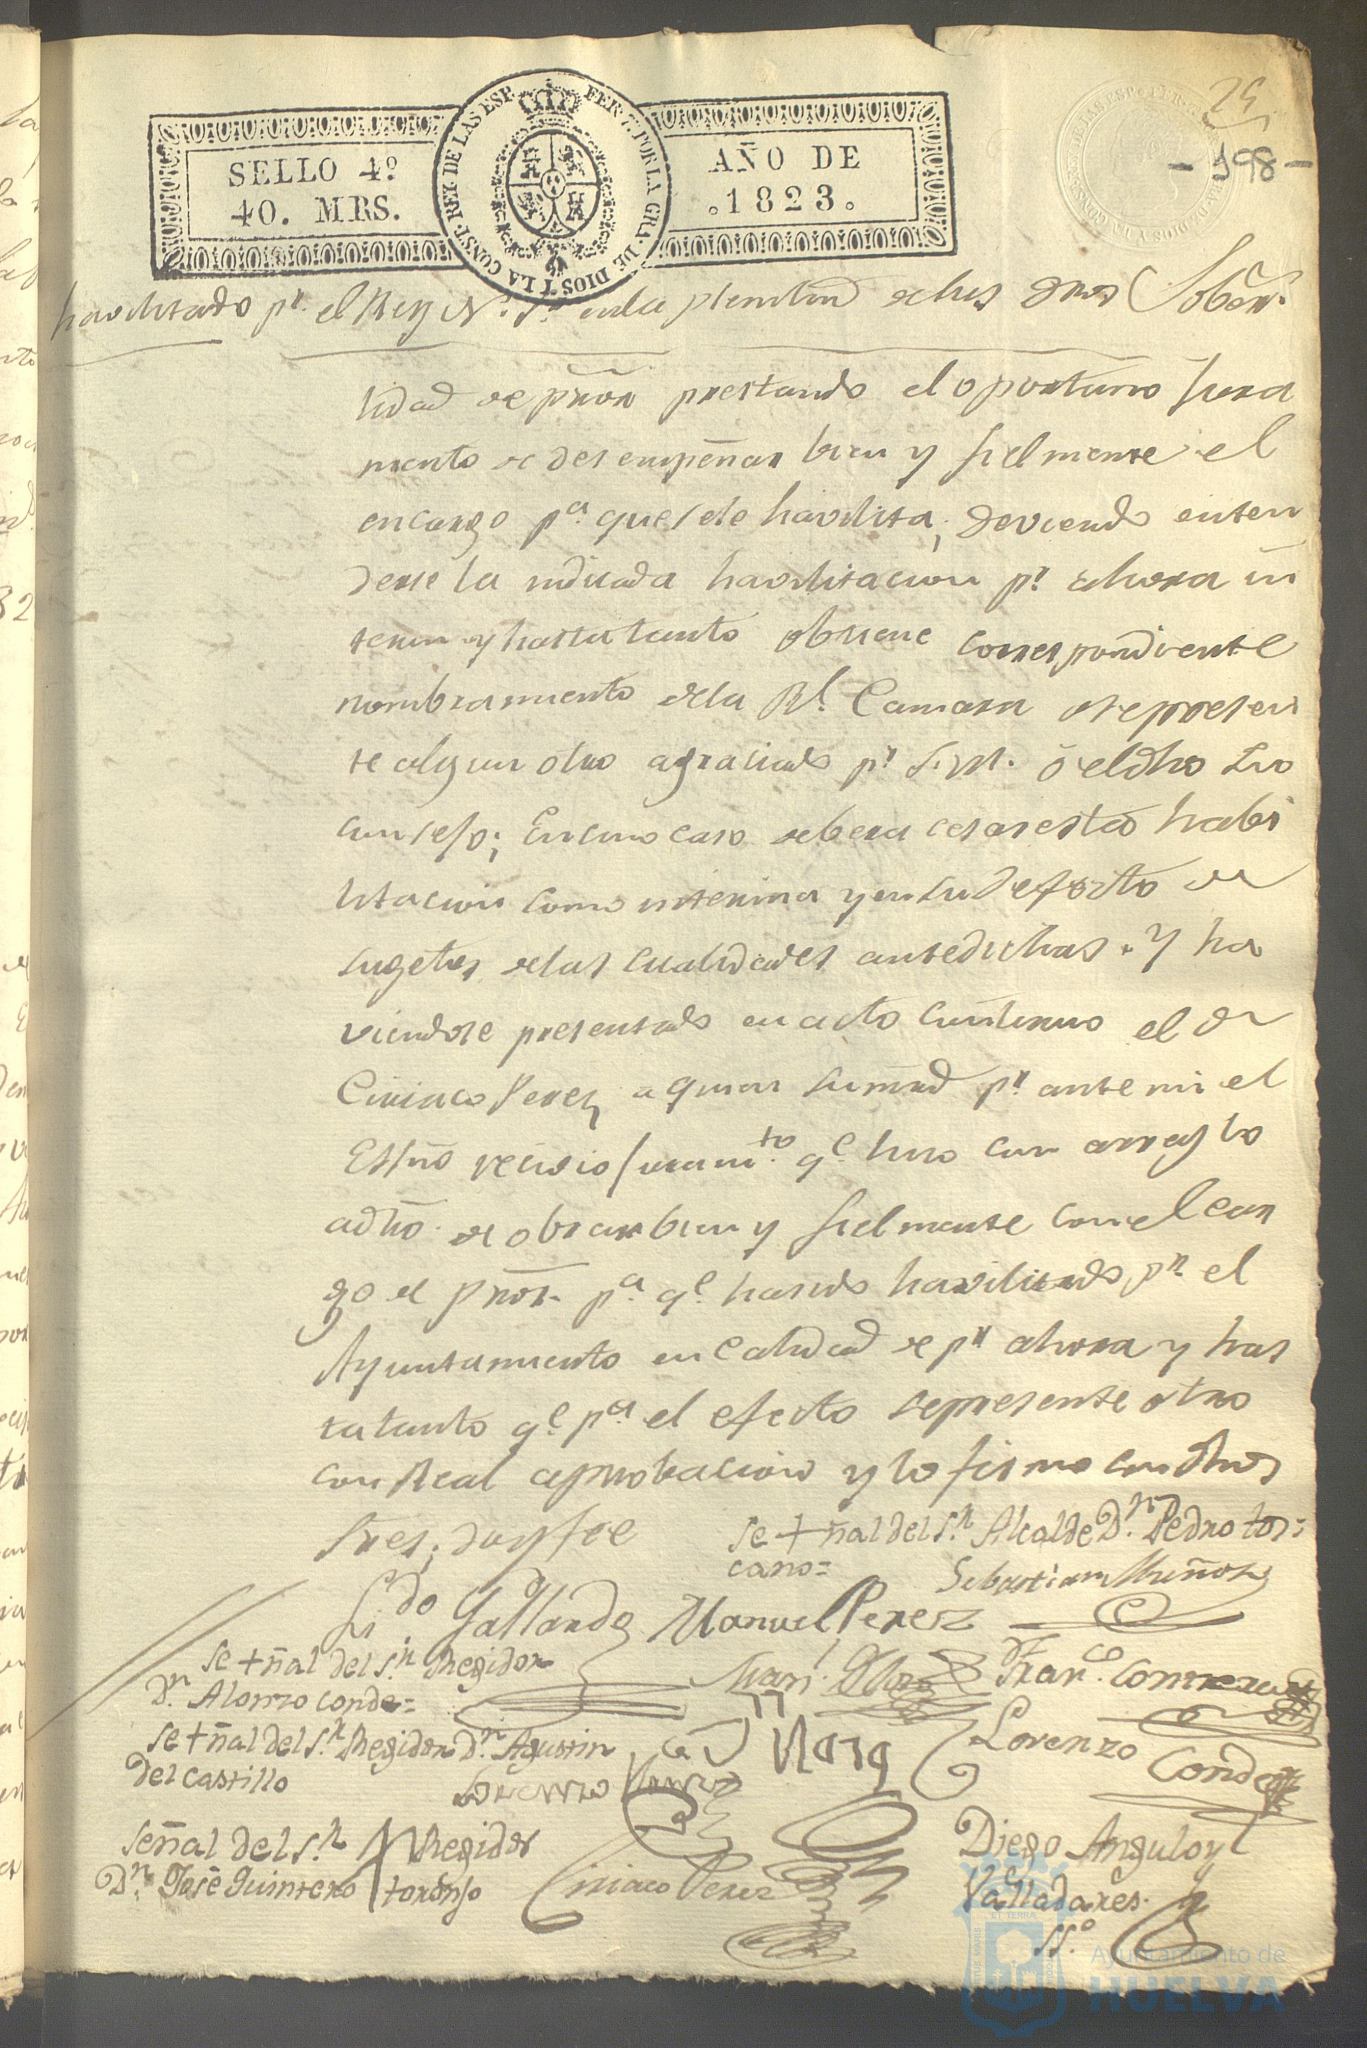 25
- 198 -
SELLO 4º
40. MRS.
FER. 7. POR LA GRA. DE DIOS Y LA CONST. REY DE LAS ESP.
AÑO DE
.1823.
havilitado pr. el Rey N. Sr. en la plenitud de sus dros Sobera.
lidad de pñor prestando el oportuno Jura
mento de desempeñar bien y fielmente el
encargo pa. que se le havilita; deviendo enten
derse la indicada havilitacion pr. ahora in
terin y hasta tanto obtiene correspondiente
nombramiento de la Rl. Camara o se presen
te algun otro agraciado pr. S.M. ó el dho Su
consejo; En cuio caso debera cesar esta habi
litacion como interina y en su defecto de
sugetos de las cualidades antedichas. Y ha
viendose presentado en acto continuo el Dn
Ciriaco Perez a quien su mrd pr. ante mi el
Essno recivio juramto. qe. hizo con arreglo
a dro. de obrar bien y fielmente con el car
go de pñor. pa. qe. ha sido havilitado pr. el
Ayuntamiento en calidad de pr ahora y has
ta tanto qe. pa. el efecto se presente otro
con Real aprobacion y lo firmo con dhos
Sres; doy fee
Se + ñal del Sr. Alcalde Dn. Pedro tos=
cano=
Sebastian Muñoz
Lido. Gallardo
Manuel Perez
Se + ñal del Sr. Regidor
Dn. Alonzo conde=
Franco. Contreras
Se + ñal del Sr. Regidor Dn. Agustin
del castillo
Lorenzo
Conde
Señal del Sr. Regidor
Dn. José Quintero toronjo
Ciriaco Perez
Diego Angulo y
Valladares.
SSo.
Ayuntamiento de
HUELVA